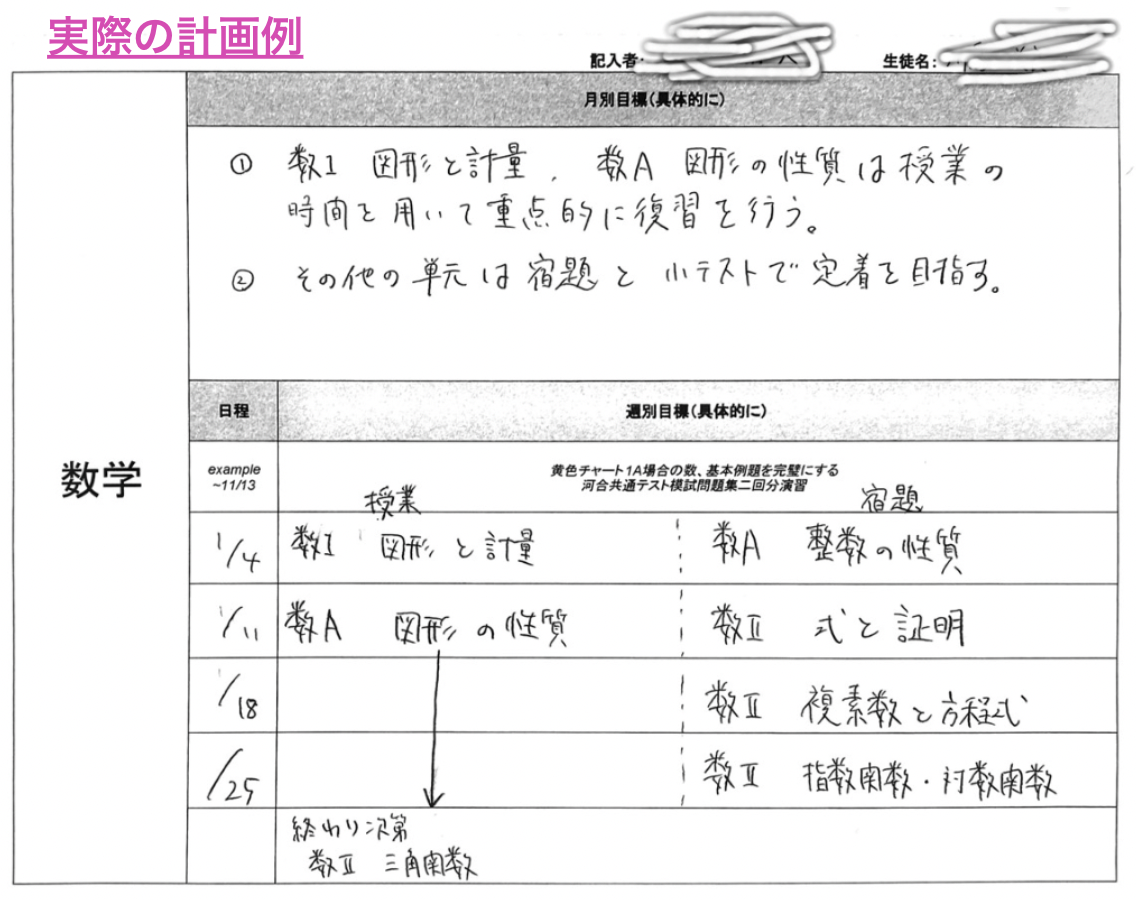 実際の計画例
記入者: 生徒名:
月別目標(具体的に)
① 数I 図形と計量、数A 図形の性質は授業の
時間を用いて重点的に復習を行う。
② その他の単元は宿題と小テストで定着を目指す。
数学
日程 週別目標(具体的に)
example
~11/13
黄色チャート1A場合の数、基本例題を完璧にする
河合共通テスト模試問題集二回分演習
授業 宿題
1/4 数I 図形と計量 数A 整数の性質
1/11 数A 図形の性質 数II 式と証明
/18 数II 複素数と方程式
/25 数II 指数関数・対数関数
終わり次第
数II 三角関数